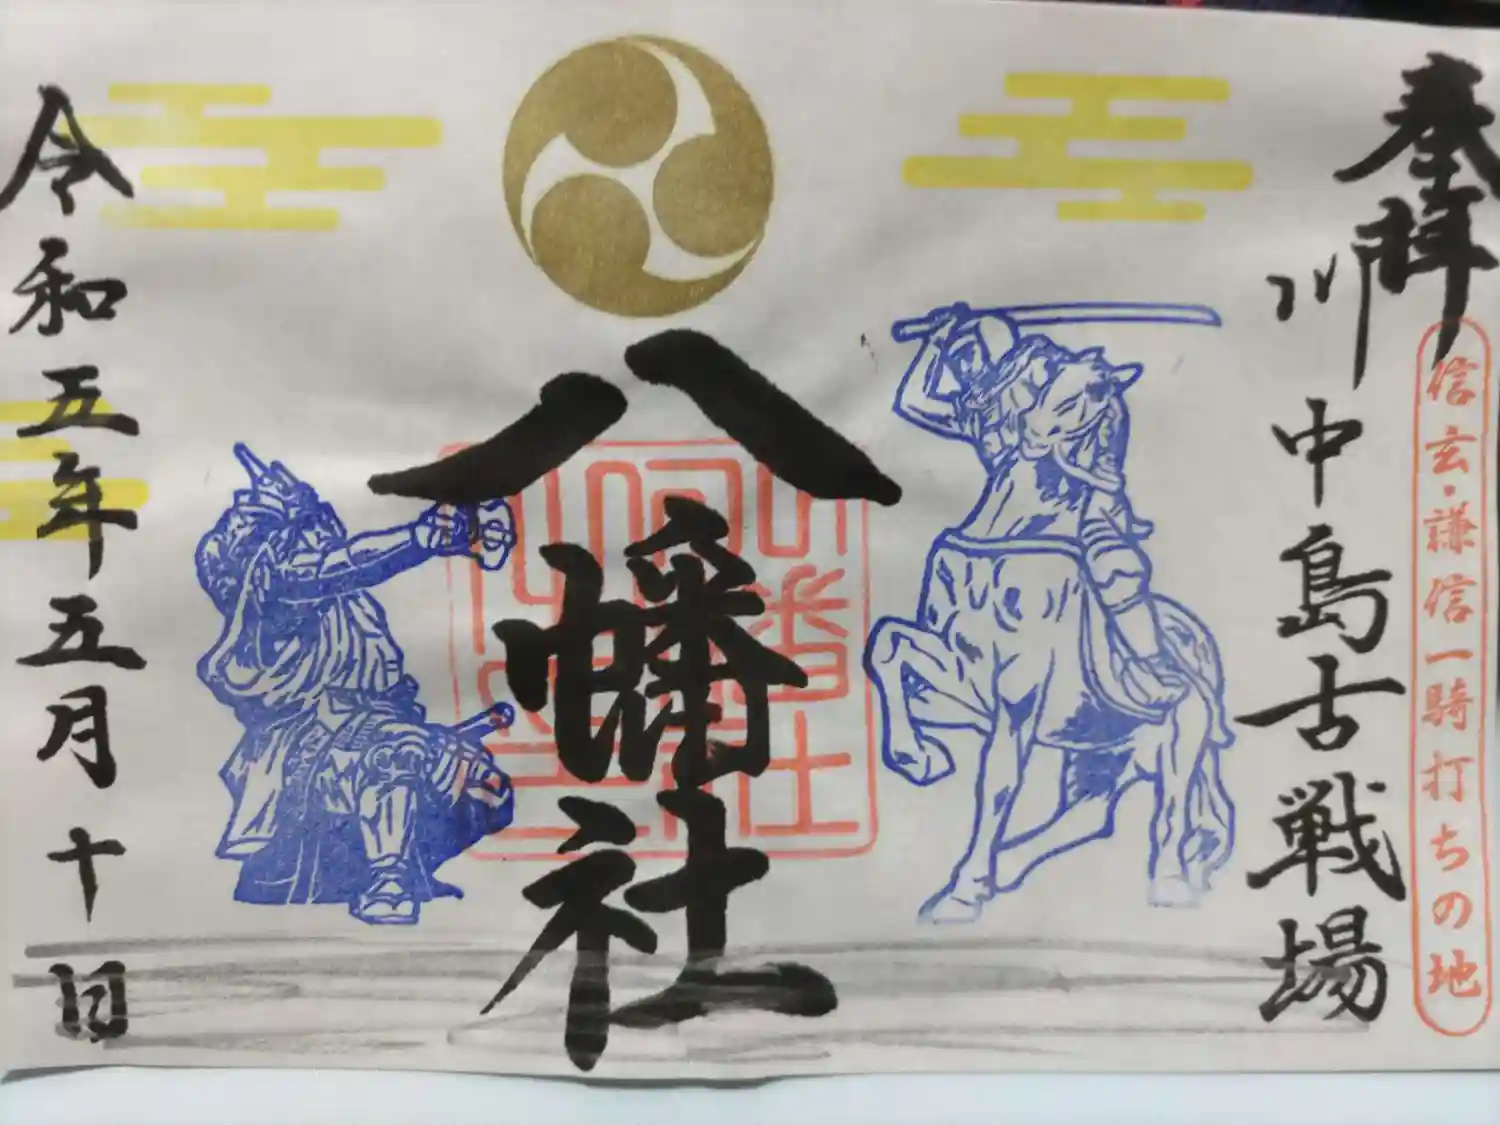 奉拝
信玄・謙信一騎打ちの地
川中島古戦場
八幡社
令和五年五月十日